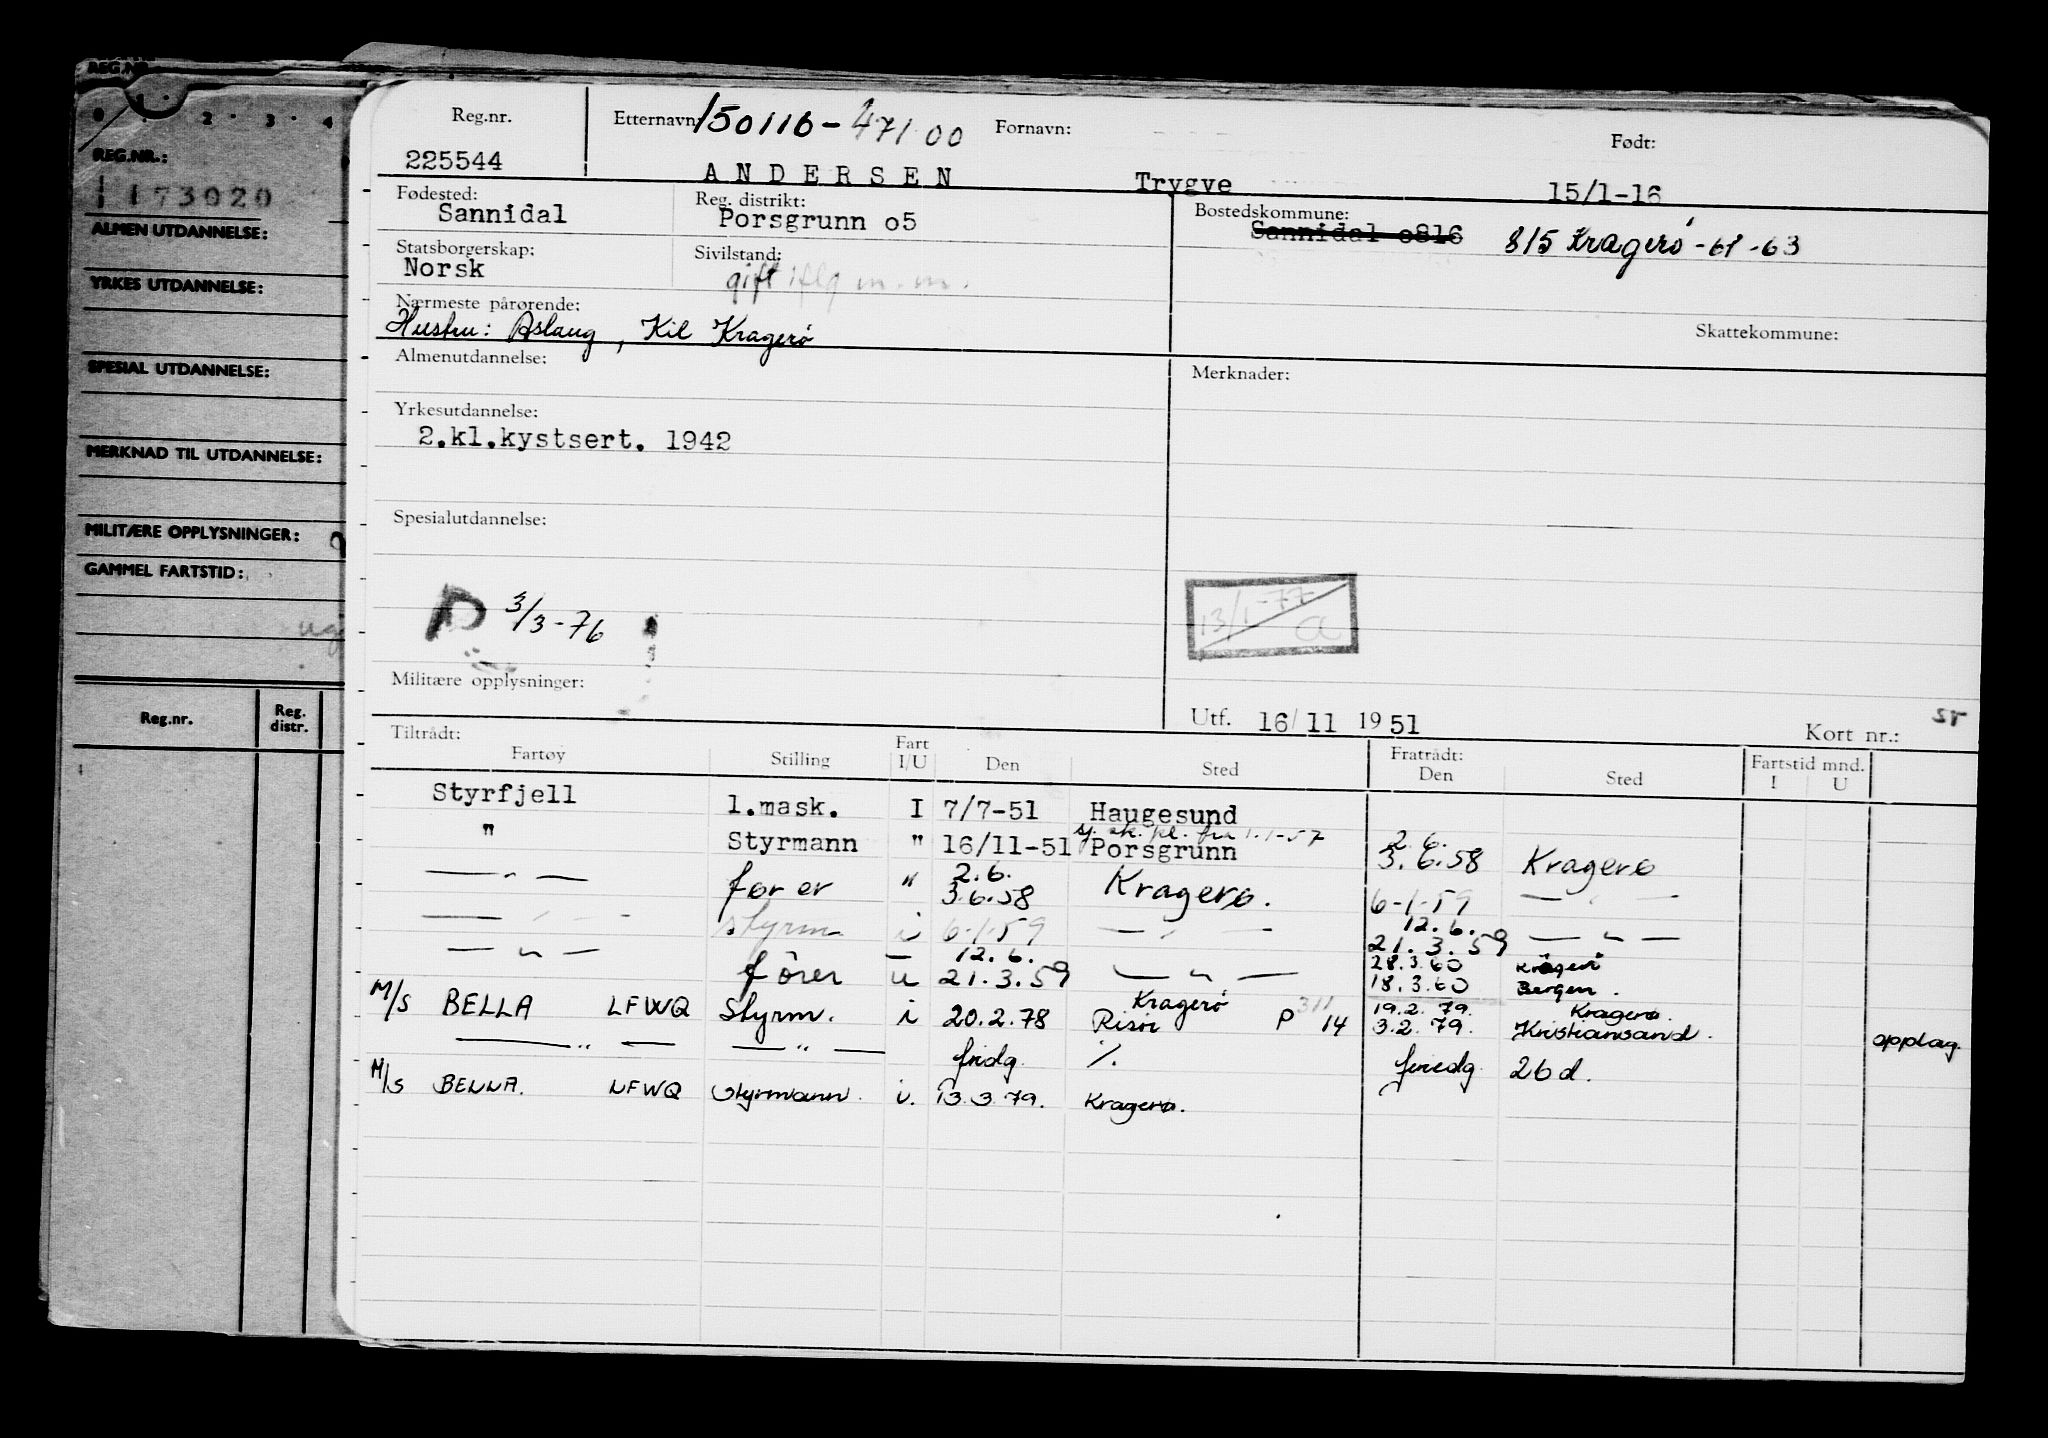 REG.NR.
0 1 2 3 4
REG.NR.:
173020
ALMEN UTDANNELSE:
YRKES UTDANNELSE:
SPESIAL UTDANNELSE:
MERKNAD TIL UTDANNELSE:
MILITÆRE OPPLYSNINGER:
GAMMEL FARTSTID:
Reg.nr. Reg. distr.
Reg.nr. Etternavn: 150116-47100 Fornavn: Født:
225544 ANDERSEN Trygve 15/1-16
Fødested: Reg. distrikt: Bostedskommune:
Sannidal Porsgrunn o5 Sannidal o816 815 Kragerö -61-63
Statsborgerskap: Sivilstand:
Norsk gift iflg m.m.
Nærmeste pårørende: Skattekommune:
Hustru: Aslaug, Kil Kragerø
Almenutdannelse: Merknader:
Yrkesutdannelse:
2.kl.kystsert. 1942
Spesialutdannelse:
D 3/3-76 13/1-77 a
Militære opplysninger:
Utf. 16/11 1951 Kort nr.: sr
Tiltrådt: Fratrådt:
Fartøy Stilling Fart I/U Den Sted Den Sted Fartstid mnd. I U
Styrfjell 1.mask. I 7/7-51 Haugesund
sj. sk. pl. fra 1.1-57
" Styrmann " 16/11-51 Porsgrunn 2.6. 3.6.58 Kragerø
— " — fører " 2.6. 3.6.58 Kragerø. 6-1-59 — " —
— " — styrm i 6-1-59 — " — 12.6. 21.3.59 — " —
— " — förer u 12.6. 21.3.59 — " — 28.3.60 Kragerö
18.3.60 Bergen.
M/S BELLA LFWQ Styrm. i 20.2.78 Kragerø Risör P 311 14 19.2.79. Kragerø.
3.2.79. Kristiansand. opplag.
— " — — " — fridg ./. feriedg 26 d.
M/S BELLA. LFWQ Styrmann. i. 13.3.79. Kragerø.